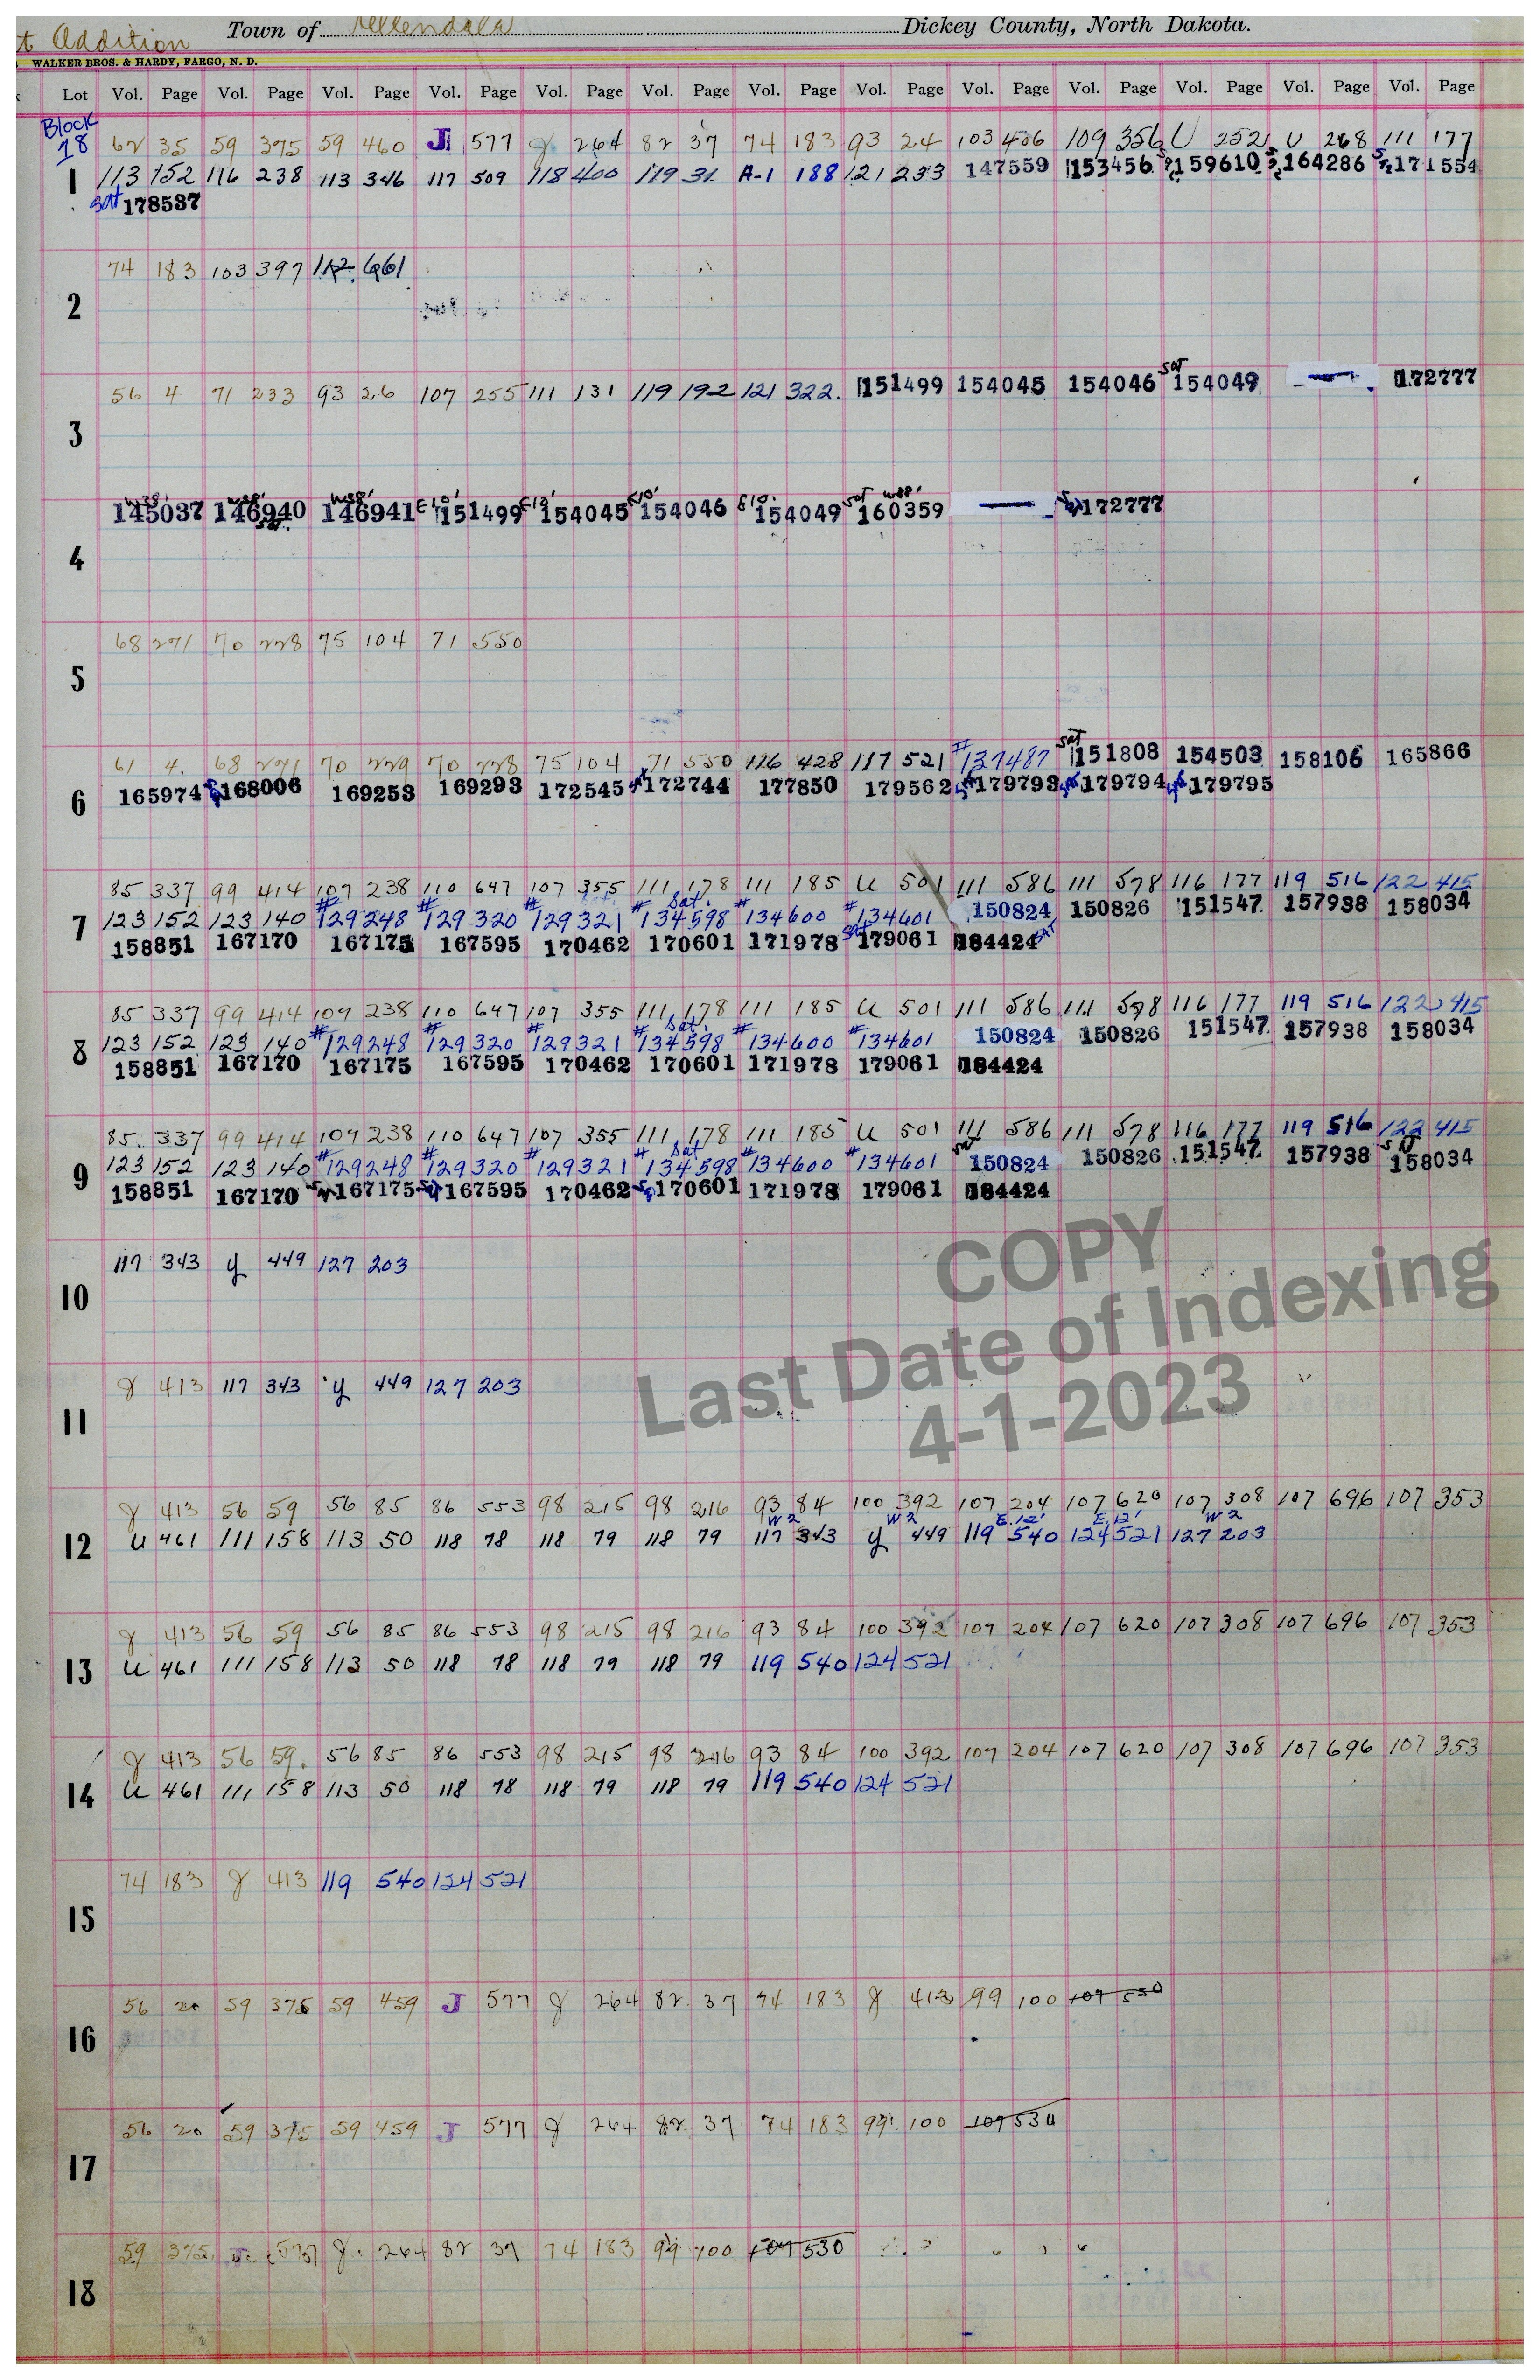 t Addition Town of Ellendale Dickey County, North Dakota.
WALKER BROS. & HARDY, FARGO, N. D.
Lot Vol. Page Vol. Page Vol. Page Vol. Page Vol. Page Vol. Page Vol. Page Vol. Page Vol. Page Vol. Page Vol. Page Vol. Page Vol. Page
Block
18 62 35 59 375 59 460 J 577 g 264 82 37 74 183 93 24 103 406 109 356 U 252 U 268 111 177
1 113 152 116 238 113 346 117 509 118 400 119 31 A-1 188 121 233 147559 153456 159610 164286 171554
Sat 178537
74 183 103 397 112 661
2
56 4 71 233 93 26 107 255 111 131 119 192 121 322 151499 154045 154046 Sat 154049 — 172777
3
W38' 145037 W38' 146940 Sat. W38' 146941 E10' 151499 E12' 154045 E10' 154046 E10' 154049 Sat W88' 160359 — 172777
4
68 271 70 228 75 104 71 550
5
61 4 68 271 70 229 70 228 75 104 71 550 116 428 117 521 #137487 Sat 151808 154503 158106 165866
6 165974 168006 169253 169293 172545 172744 177850 179562 179793 179794 179795
85 337 99 414 109 238 110 647 107 355 111 178 111 185 U 501 111 586 111 578 116 177 119 516 122 415
7 123 152 123 140 #129248 #129320 #129321 #134598 Sat. #134600 #134601 150824 150826 151547 157938 158034
158851 167170 167175 167595 170462 170601 171978 Sat 179061 184424 SAT
85 337 99 414 109 238 110 647 107 355 111 178 111 185 U 501 111 586 111 578 116 177 119 516 122 415
8 123 152 123 140 #129248 #129320 #129321 #134598 Sat. #134600 #134601 150824 150826 151547 157938 158034
158851 167170 167175 167595 170462 170601 171978 179061 184424
85 337 99 414 109 238 110 647 107 355 111 178 111 185 U 501 111 586 111 578 116 177 119 516 122 415
9 123 152 123 140 #129248 #129320 #129321 #134598 Sat #134600 #134601 Sat 150824 150826 151547 157938 158034
158851 167170 167175 167595 170462 170601 171978 179061 184424
117 343 y 449 127 203
10
COPY
Last Date of Indexing
4-1-2023
g 413 117 343 y 449 127 203
11
g 413 56 59 56 85 86 553 98 215 98 216 93 84 100 392 107 204 107 620 107 308 107 696 107 353
12 U 461 111 158 113 50 118 78 118 79 118 79 W2 117 343 W2 y 449 E.12' 119 540 E.12' 124 521 W2 127 203
g 413 56 59 56 85 86 553 98 215 98 216 93 84 100 392 107 204 107 620 107 308 107 696 107 353
13 U 461 111 158 113 50 118 78 118 79 118 79 119 540 124 521
g 413 56 59 56 85 86 553 98 215 98 216 93 84 100 392 107 204 107 620 107 308 107 696 107 353
14 U 461 111 158 113 50 118 78 118 79 118 79 119 540 124 521
74 183 g 413 119 540 124 521
15
56 20 59 375 59 459 J 577 g 264 82 37 74 183 g 413 99 100 107 530
16
56 20 59 375 59 459 J 577 g 264 82 37 74 183 99 100 107 530
17
59 375 J 577 g 264 82 37 74 183 99 100 107 530
18